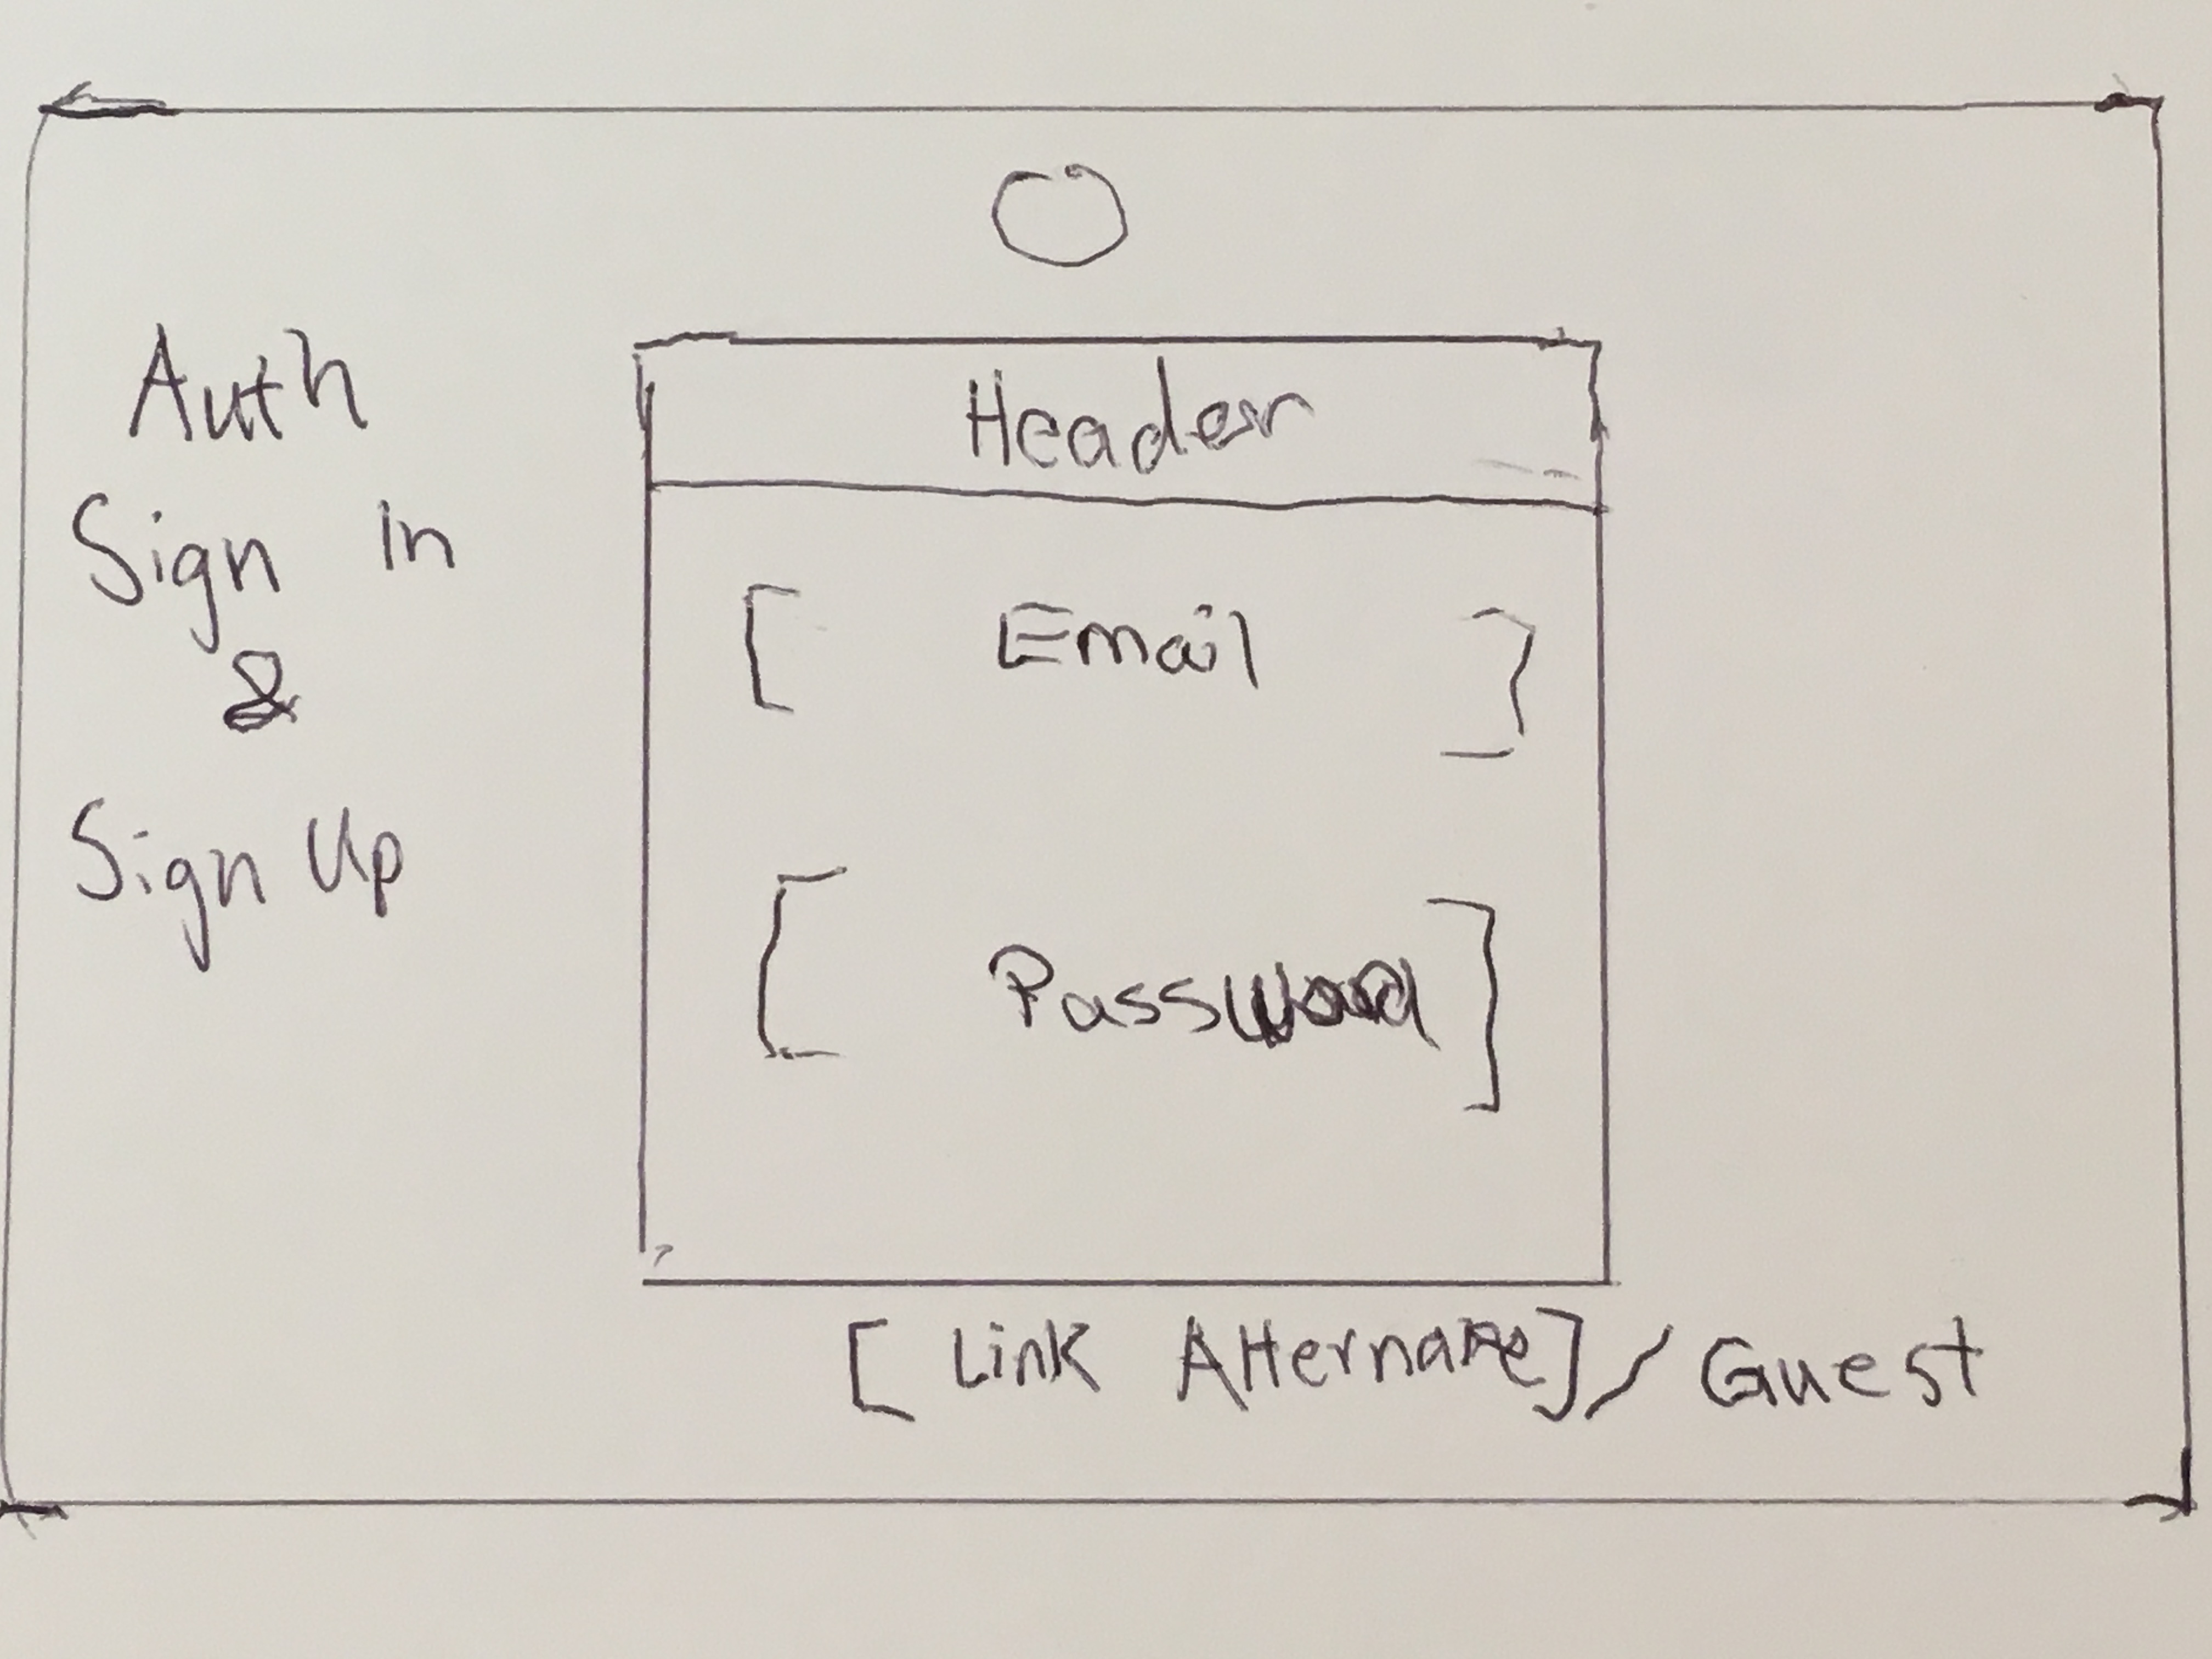 Auth
Sign in
&
Sign Up
Header
[ Email ]
[ Password ]
[ Link Alternate] / Guest